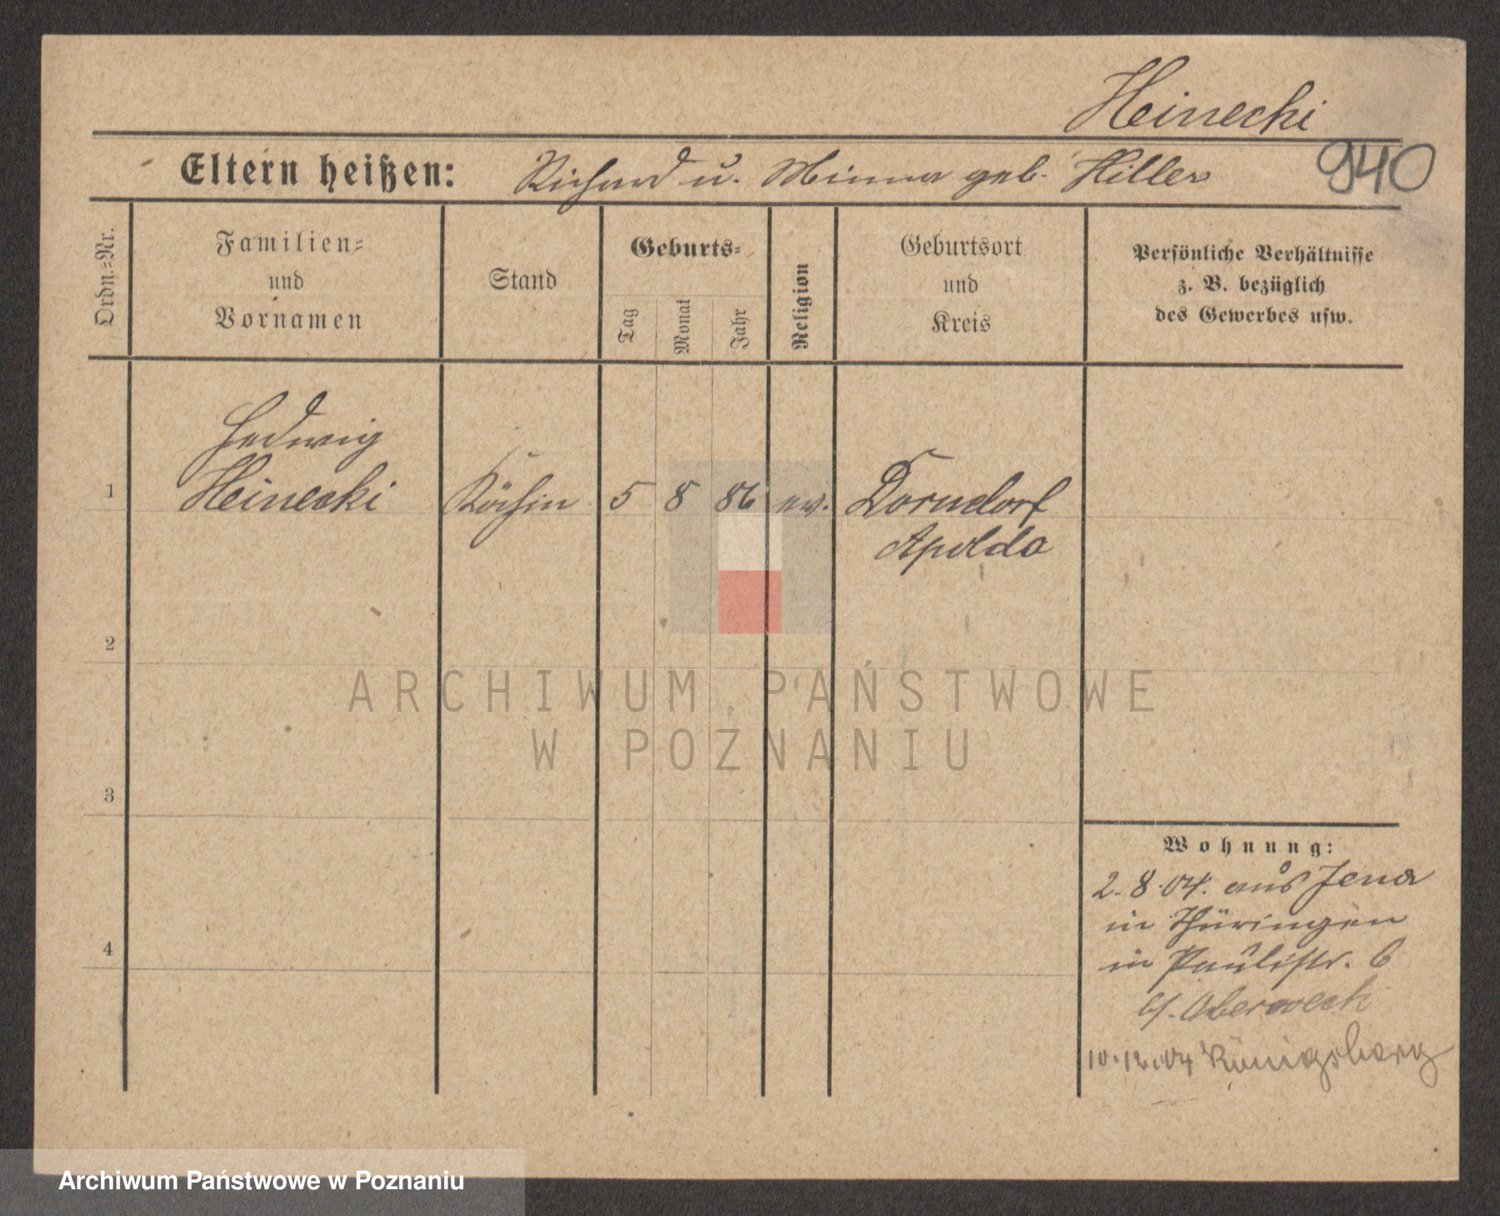 Heinecki
940
Eltern heißen: Richard u. Minna geb. Hiller
Ordn.=Nr.
Familien=
und
Vornamen
Stand
Geburts=
Tag
Monat
Jahr
Religion
Geburtsort
und
Kreis
Persönliche Verhältnisse
z. B. bezüglich
des Gewerbes usw.
Hedwig
1 Heinecki Köchin 5 8 86 ev. Dorndorf
Apolda
2
3
4
Wohnung:
2.8.04. aus Jena
in Thüringen
in Paulistr. 6
10.12.04 Königsberg
ARCHIWUM PAŃSTWOWE
W POZNANIU
Archiwum Państwowe w Poznaniu